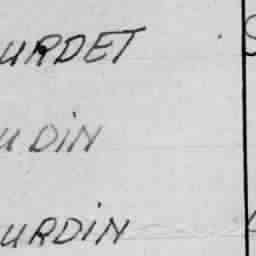 URDET
U DIN
URDIN